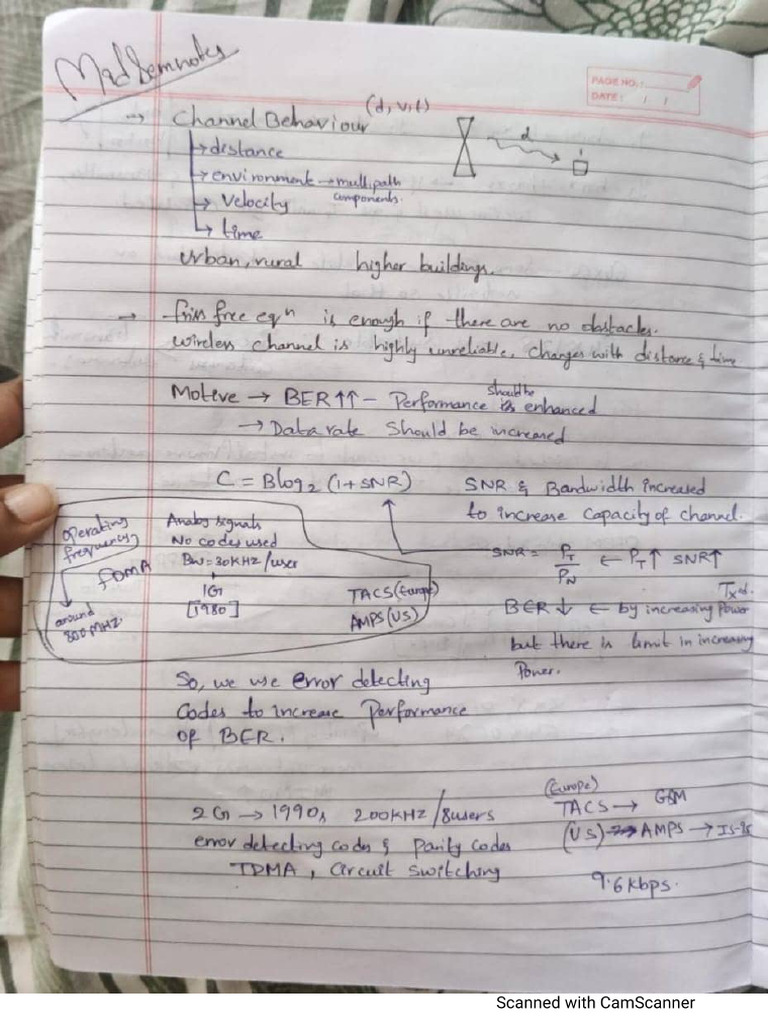 Mid Sem notes
PAGE NO.:
DATE: / /
→ Channel Behaviour (d, v, t)
d
→ distance
→ environment → multipath components.
→ Velocity
→ time
Urban, rural higher buildings.
→ friis free eqn is enough if there are no obstacles.
wireless channel is highly unreliable, changes with distance & time
Motive → BER↑↑ - Performance should be enhanced
→ Data rate should be increased
C = B log2 (1+SNR)
SNR & Bandwidth increased
to increase capacity of channel.
SNR = PT/PN ← PT↑ SNR↑
BER ↓ ← by increasing Txd. Power
but there is limit in increasing
Power.
operating frequency
around 800 MHz.
FDMA
Analog signals
No codes used
BW = 30KHZ/user
1G
[1980]
TACS (Europe)
AMPS (US)
So, we use error detecting
codes to increase Performance
of BER.
2G → 1990s 200KHZ/8users
error detecting codes & parity codes
TDMA, Circuit switching
(Europe)
TACS → GSM
(US) → AMPS → IS-95
9.6 kbps.
Scanned with CamScanner